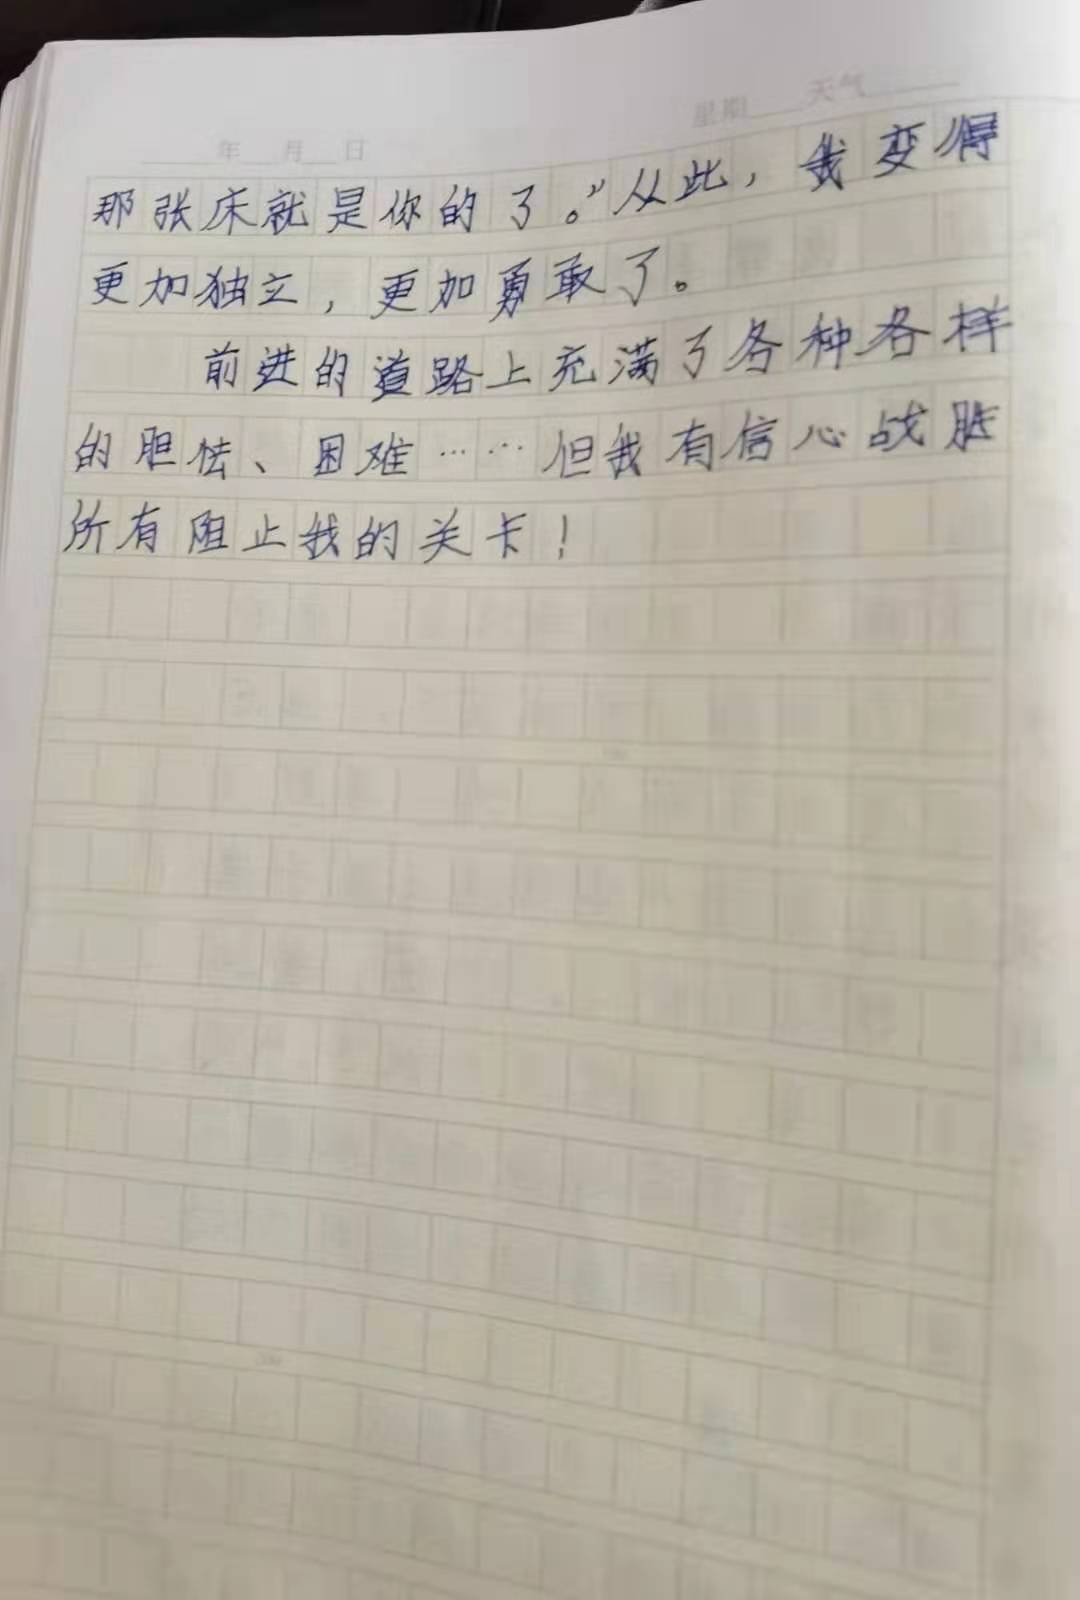 星期 天气
年 月 日
那张床就是你的了。”从此，我变得
更加独立，更加勇敢了。
前进的道路上充满了各种各样
的胆怯、困难……但我有信心战胜
所有阻止我的关卡！